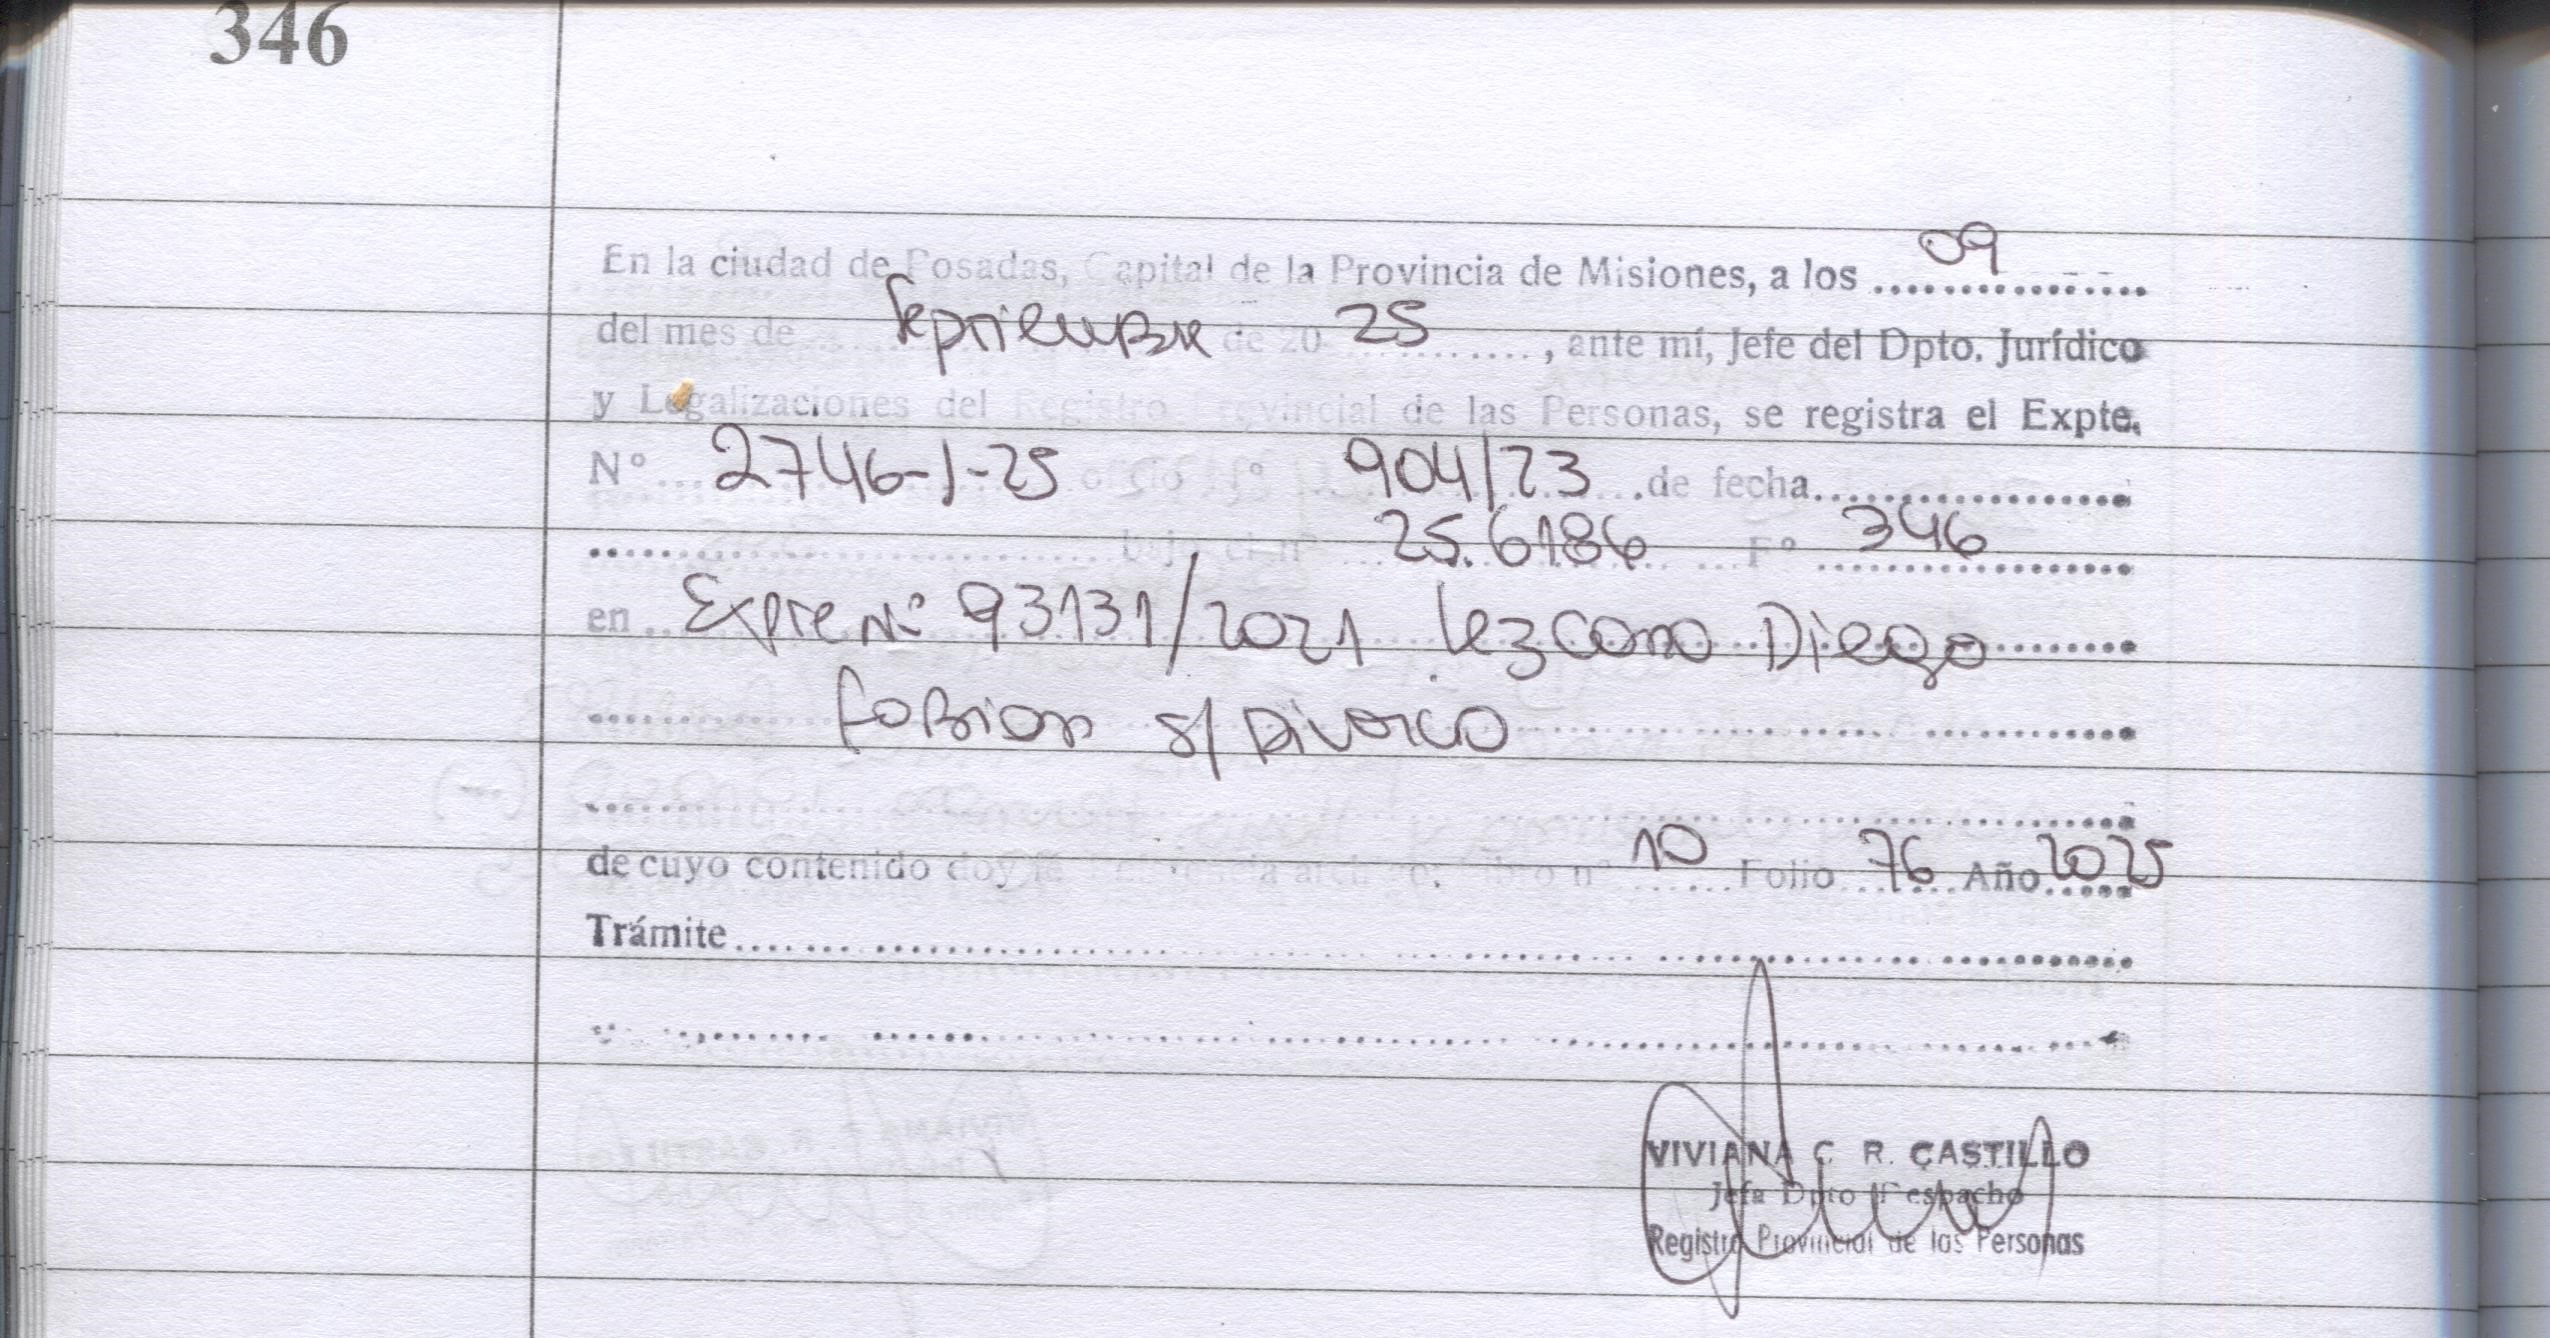 346
En la ciudad de Posadas, Capital de la Provincia de Misiones, a los 09
del mes de Septiembre de 20 25, ante mí, Jefe del Dpto. Jurídico
y Legalizaciones del Registro Provincial de las Personas, se registra el Expte.
N° 2746-J-25 oficio n° 904/23 de fecha
bajo el n° 25.6186 F° 346
en Expte N° 93131/2021 Lezcano Diego
Fabian s/ Divorcio
de cuyo contenido doy fe 10 Folio 76 Año 2025
Trámite
VIVIANA C. R. CASTILLO
Jefa Dpto Despacho
Registro Provincial de las Personas